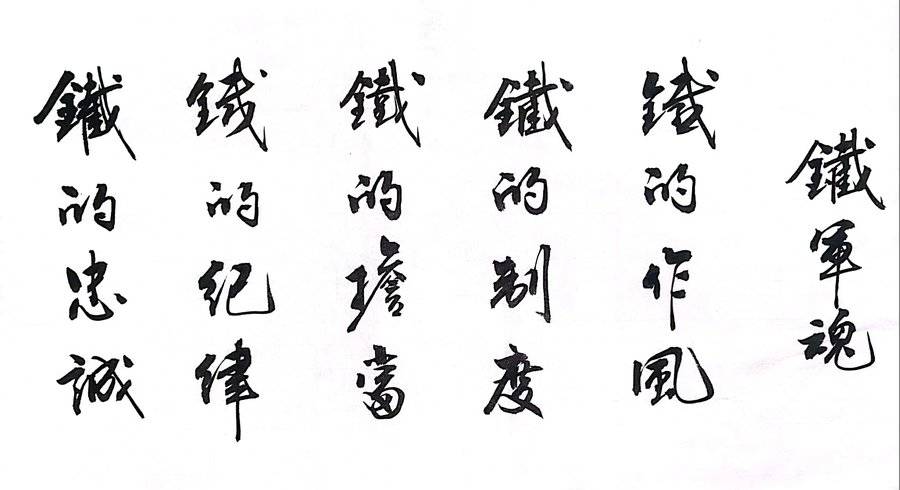 鐵軍魂
鐵的作風
鐵的制度
鐵的擔當
鐵的紀律
鐵的忠誠